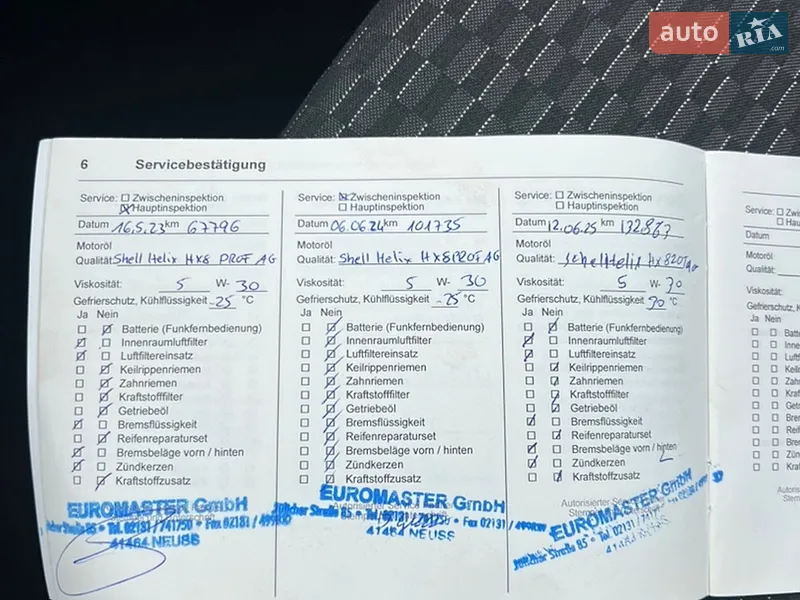 auto RIA .com
6 Servicebestätigung
Service: Zwischeninspektion
Hauptinspektion
Datum 16.5.23 km 67796
Motoröl
Qualität: Shell Helix HX8 PROF AG
Viskosität: 5 W- 30
Gefrierschutz, Kühlflüssigkeit -25 °C
Ja Nein
Batterie (Funkfernbedienung)
Innenraumluftfilter
Luftfiltereinsatz
Keilrippenriemen
Zahnriemen
Kraftstofffilter
Getriebeöl
Bremsflüssigkeit
Reifenreparaturset
Bremsbeläge vorn / hinten
Zündkerzen
Kraftstoffzusatz
EUROMASTER GmbH
Jülicher Straße 85 • Tel. 02131 / 741750 • Fax 02131 /
41464 NEUSS
Service: Zwischeninspektion
Hauptinspektion
Datum 06.06.24 km 101735
Motoröl
Qualität: Shell Helix HX8 PROF AG
Viskosität: 5 W- 30
Gefrierschutz, Kühlflüssigkeit -25 °C
Ja Nein
Batterie (Funkfernbedienung)
Innenraumluftfilter
Luftfiltereinsatz
Keilrippenriemen
Zahnriemen
Kraftstofffilter
Getriebeöl
Bremsflüssigkeit
Reifenreparaturset
Bremsbeläge vorn / hinten
Zündkerzen
Kraftstoffzusatz
EUROMASTER GmbH
Jülicher Straße 85 • Tel. 02131 • Fax 02131 /
41464 NEUSS
Service: Zwischeninspektion
Hauptinspektion
Datum 12.06.25 km
Motoröl
Qualität: Helix
Viskosität: 5 W-
Gefrierschutz, Kühlflüssigkeit °C
Ja Nein
Batterie (Funkfernbedienung)
Innenraumluftfilter
Luftfiltereinsatz
Keilrippenriemen
Zahnriemen
Kraftstofffilter
Getriebeöl
Bremsflüssigkeit
Reifenreparaturset
Bremsbeläge vorn / hinten
Zündkerzen
Kraftstoffzusatz
Autorisierter
EUROMASTER GmbH
Jülicher Straße 85 • Tel. 02131
41464 NEUSS
Service:
Datum
Motoröl
Qualität:
Viskosität:
Ja Nein